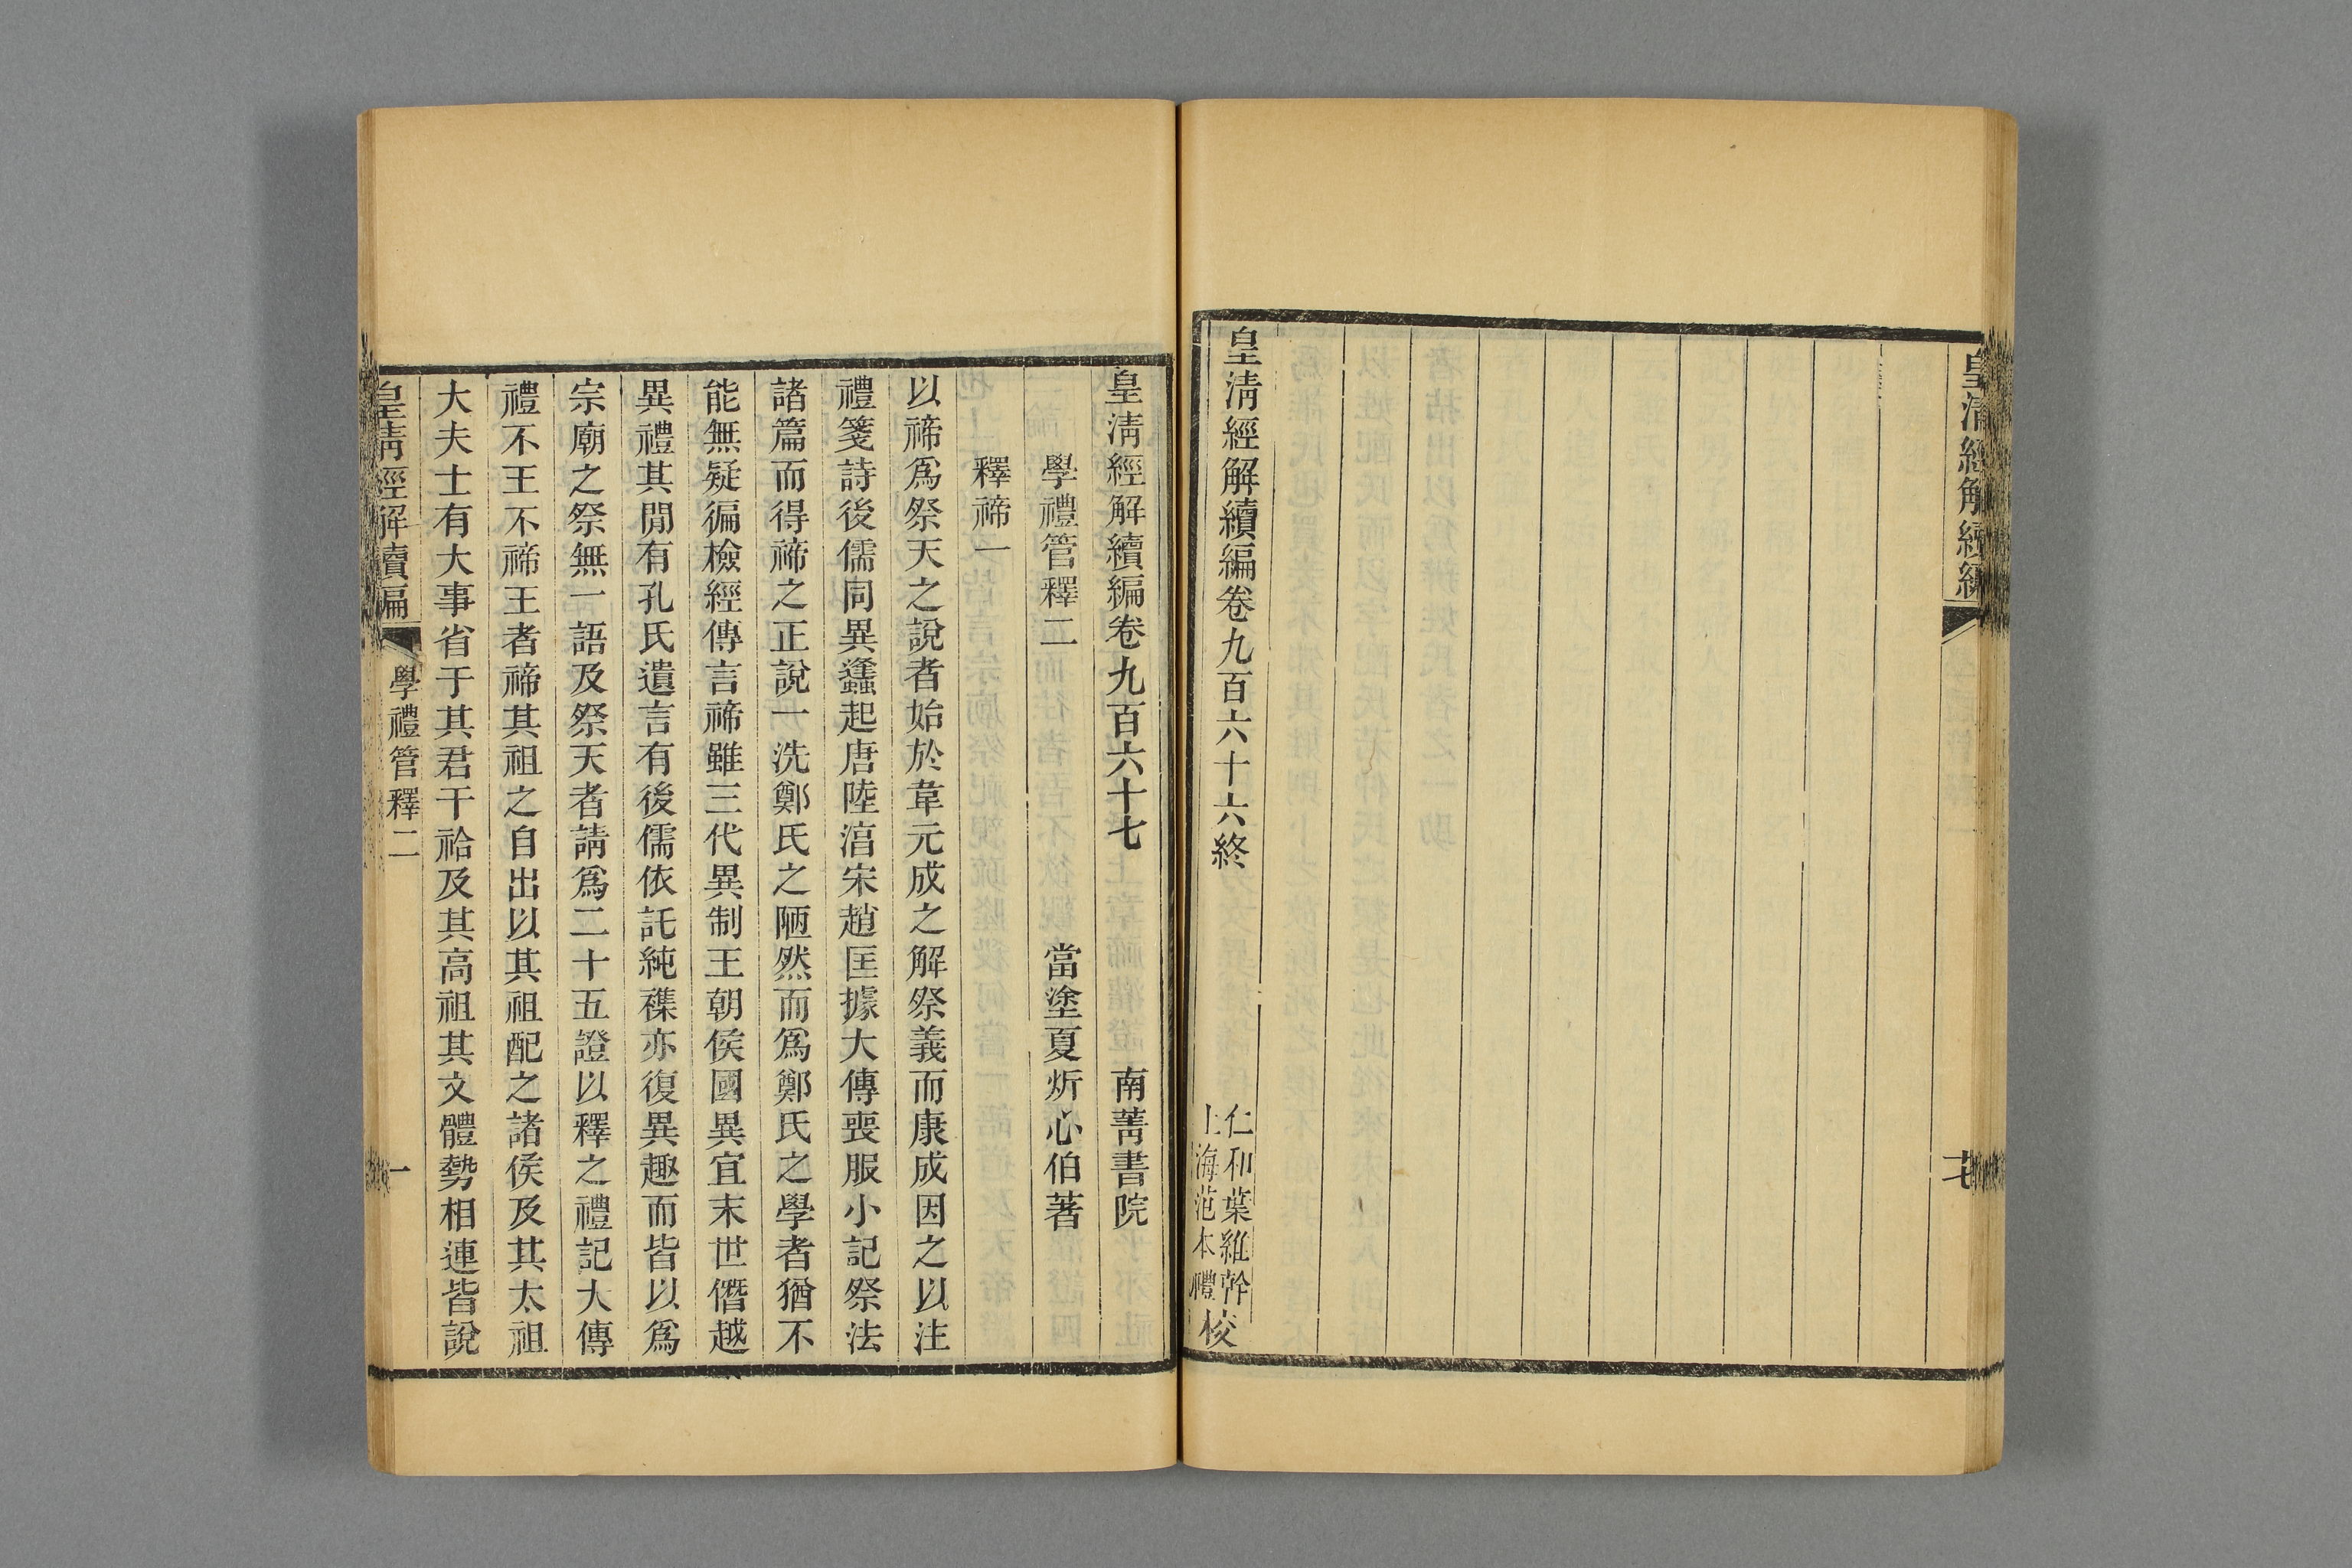 皇清經解續編
皇清經解續編卷九百六十六終
仁和葉維幹
上海范本禮
校
皇清經解續編卷九百六十七 南菁書院
學禮管釋二 當塗夏炘心伯著
釋禘一
以禘爲祭天之說者始於韋元成之解祭義而康成因之以注
禮箋詩後儒同異蠭起唐陸淳宋趙匡據大傳喪服小記祭法
諸篇而得禘之正說一洗鄭氏之陋然而爲鄭氏之學者猶不
能無疑徧檢經傳言禘雖三代異制王朝侯國異宜末世僭越
異禮其閒有孔氏遺言有後儒依託純襍亦復異趣而皆以爲
宗廟之祭無一語及祭天者請爲二十五證以釋之禮記大傳
禮不王不禘王者禘其祖之自出以其祖配之諸侯及其太祖
大夫士有大事省于其君干祫及其高祖其文體勢相連皆說
皇清經解續編 學禮管釋二 一